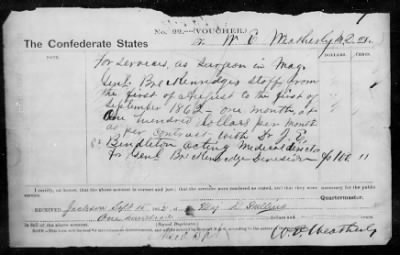 No. 22.—(VOUCHER.)
The Confederate States
To W. E. Weatherly M.D. Dr.
DATE. DOLLARS. CENTS.
For services, as surgeon in Maj.
Genl Breckenridges staff from
the first of August to the first of
September 1862 — one month, at
One hundred Dollars per month
as per contract, with Dr. J. E.
Pendleton acting Medical director
for Genl Breckenridge Division $100
I certify, on honor, that the above account is correct and just; that the services were rendered as stated, and that they were necessary for the public service.
Quartermaster.
RECEIVED Jackson Sept 15 1862 of Maj
One hundred Dollars and Cents,
in full of the above account.
(Signed Duplicates.)
W. E. Weatherly